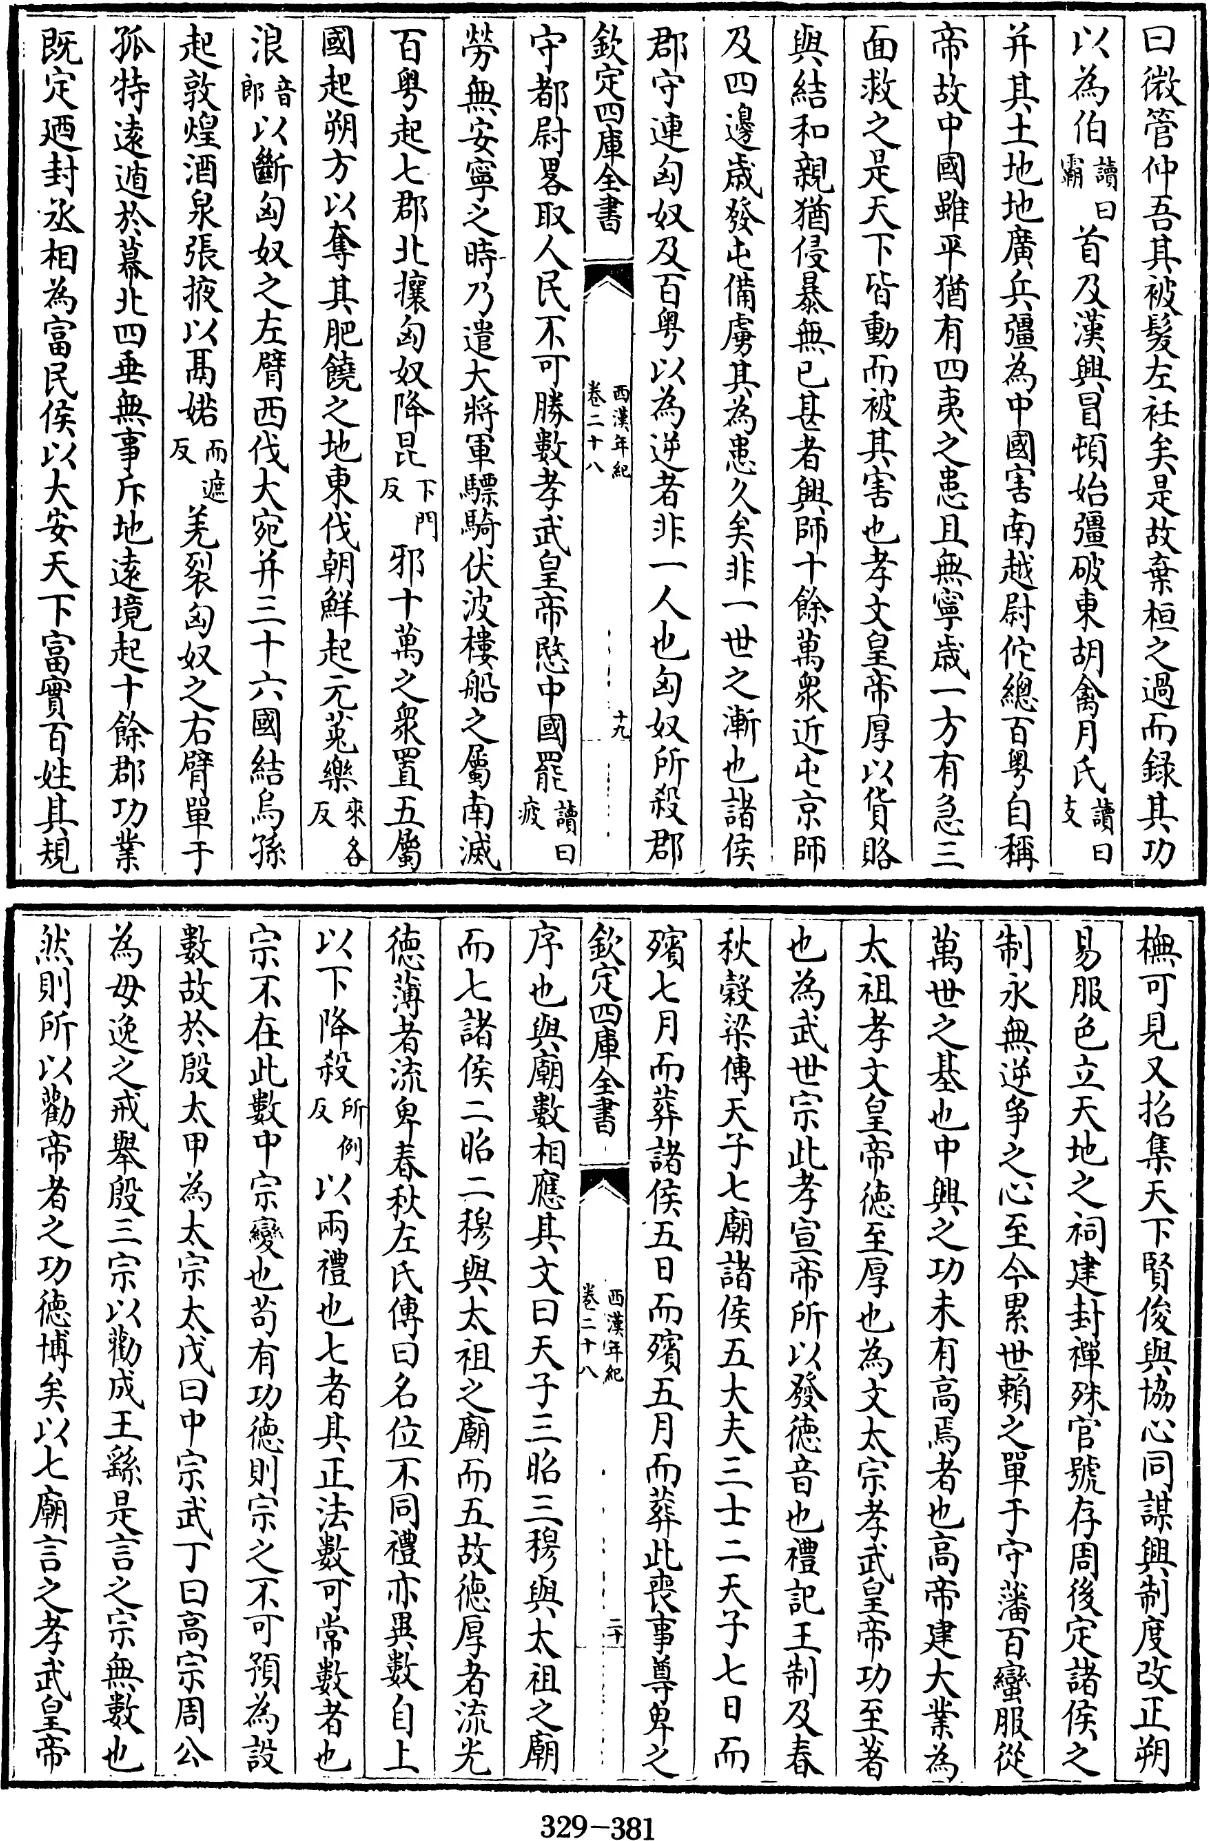 曰微管仲吾其被髮左衽矣是故棄桓之過而録其功
以為伯讀曰霸首及漢興冒頓始彊破東胡禽月氏讀曰支
并其土地地廣兵彊為中國害南越尉佗總百粤自稱
帝故中國雖平猶有四夷之患且無寧歳一方有急三
面救之是天下皆動而被其害也孝文皇帝厚以貨賂
與結和親猶侵暴無已甚者興師十餘萬衆近屯京師
及四邊歳發屯備虜其為患久矣非一世之漸也諸侯
郡守連匈奴及百粤以為逆者非一人也匈奴所殺郡
欽定四庫全書
西漢年紀
卷二十八
十九
守都尉畧取人民不可勝數孝武皇帝愍中國罷讀曰疲
勞無安寧之時乃遣大將軍驃騎伏波樓船之屬南滅
百粤起七郡北攘匈奴降昆下門反邪十萬之衆置五屬
國起朔方以奪其肥饒之地東伐朝鮮起元菟樂來各反
浪音郎以斷匈奴之左臂西伐大宛并三十六國結烏孫
起敦煌酒泉張掖以鬲婼而遮反羌裂匈奴之右臂單于
孤特遠遁於幕北四垂無事斥地遠境起十餘郡功業
既定廼封丞相為富民侯以大安天下富實百姓其規
橅可見又招集天下賢俊與協心同謀興制度改正朔
易服色立天地之祠建封禪殊官號存周後定諸侯之
制永無逆争之心至今累世賴之單于守藩百蠻服從
萬世之基也中興之功未有高焉者也高帝建大業為
太祖孝文皇帝德至厚也為文太宗孝武皇帝功至著
也為武世宗此孝宣帝所以發德音也禮記王制及春
秋穀梁傳天子七廟諸侯五大夫三士二天子七日而
殯七月而葬諸侯五日而殯五月而葬此喪事尊卑之
欽定四庫全書
西漢年紀
卷二十八
二十
序也與廟數相應其文曰天子三昭三穆與太祖之廟
而七諸侯二昭二穆與太祖之廟而五故德厚者流光
德薄者流卑春秋左氏傳曰名位不同禮亦異數自上
以下降殺所例反以兩禮也七者其正法數可常數者也
宗不在此數中宗變也苟有功德則宗之不可預為設
數故於殷太甲為太宗太戊曰中宗武丁曰高宗周公
為毋逸之戒舉殷三宗以勸成王繇是言之宗無數也
然則所以勸帝者之功德博矣以七廟言之孝武皇帝
329-381